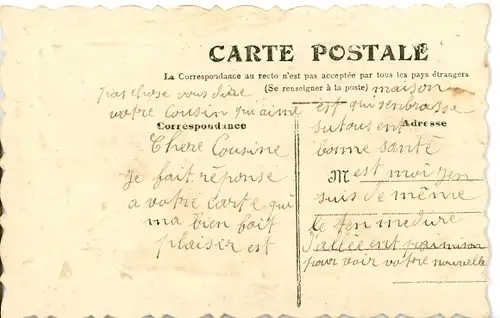 CARTE POSTALE
La Correspondance au recto n'est pas acceptée par tous les pays étrangers
(Se renseigner à la poste)
maison
pas chose vous dire
votre Cousin qui aime
Correspondance
Chere Cousine
Je fait réponse
a votre Carte qui
ma bien fait
plaisir est
est qui senbrasse
Adresse
su tous ent
bonne santé
M est moi jen
suis de même
le ten me dure
pour voir votre nouvelle